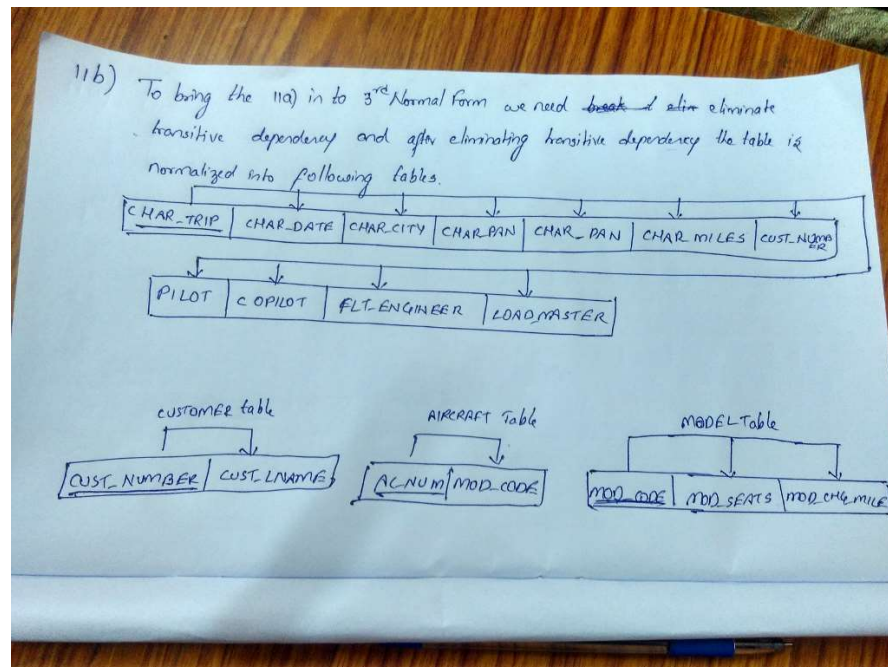 11b) To bring the 11a) in to 3rd Normal Form we need break d elim eliminate
transitive dependency and after eliminating transitive dependency the table is
normalized into following tables.
CHAR_TRIP CHAR_DATE CHAR_CITY CHAR_PAN CHAR_PAN CHAR_MILES CUST_NUMBER
PILOT COPILOT FLT_ENGINEER LOAD_MASTER
CUSTOMER table AIRCRAFT Table MODEL Table
CUST_NUMBER CUST_LNAME AC_NUM MOD_CODE MOD_CODE MOD_SEATS MOD_CHG_MILE